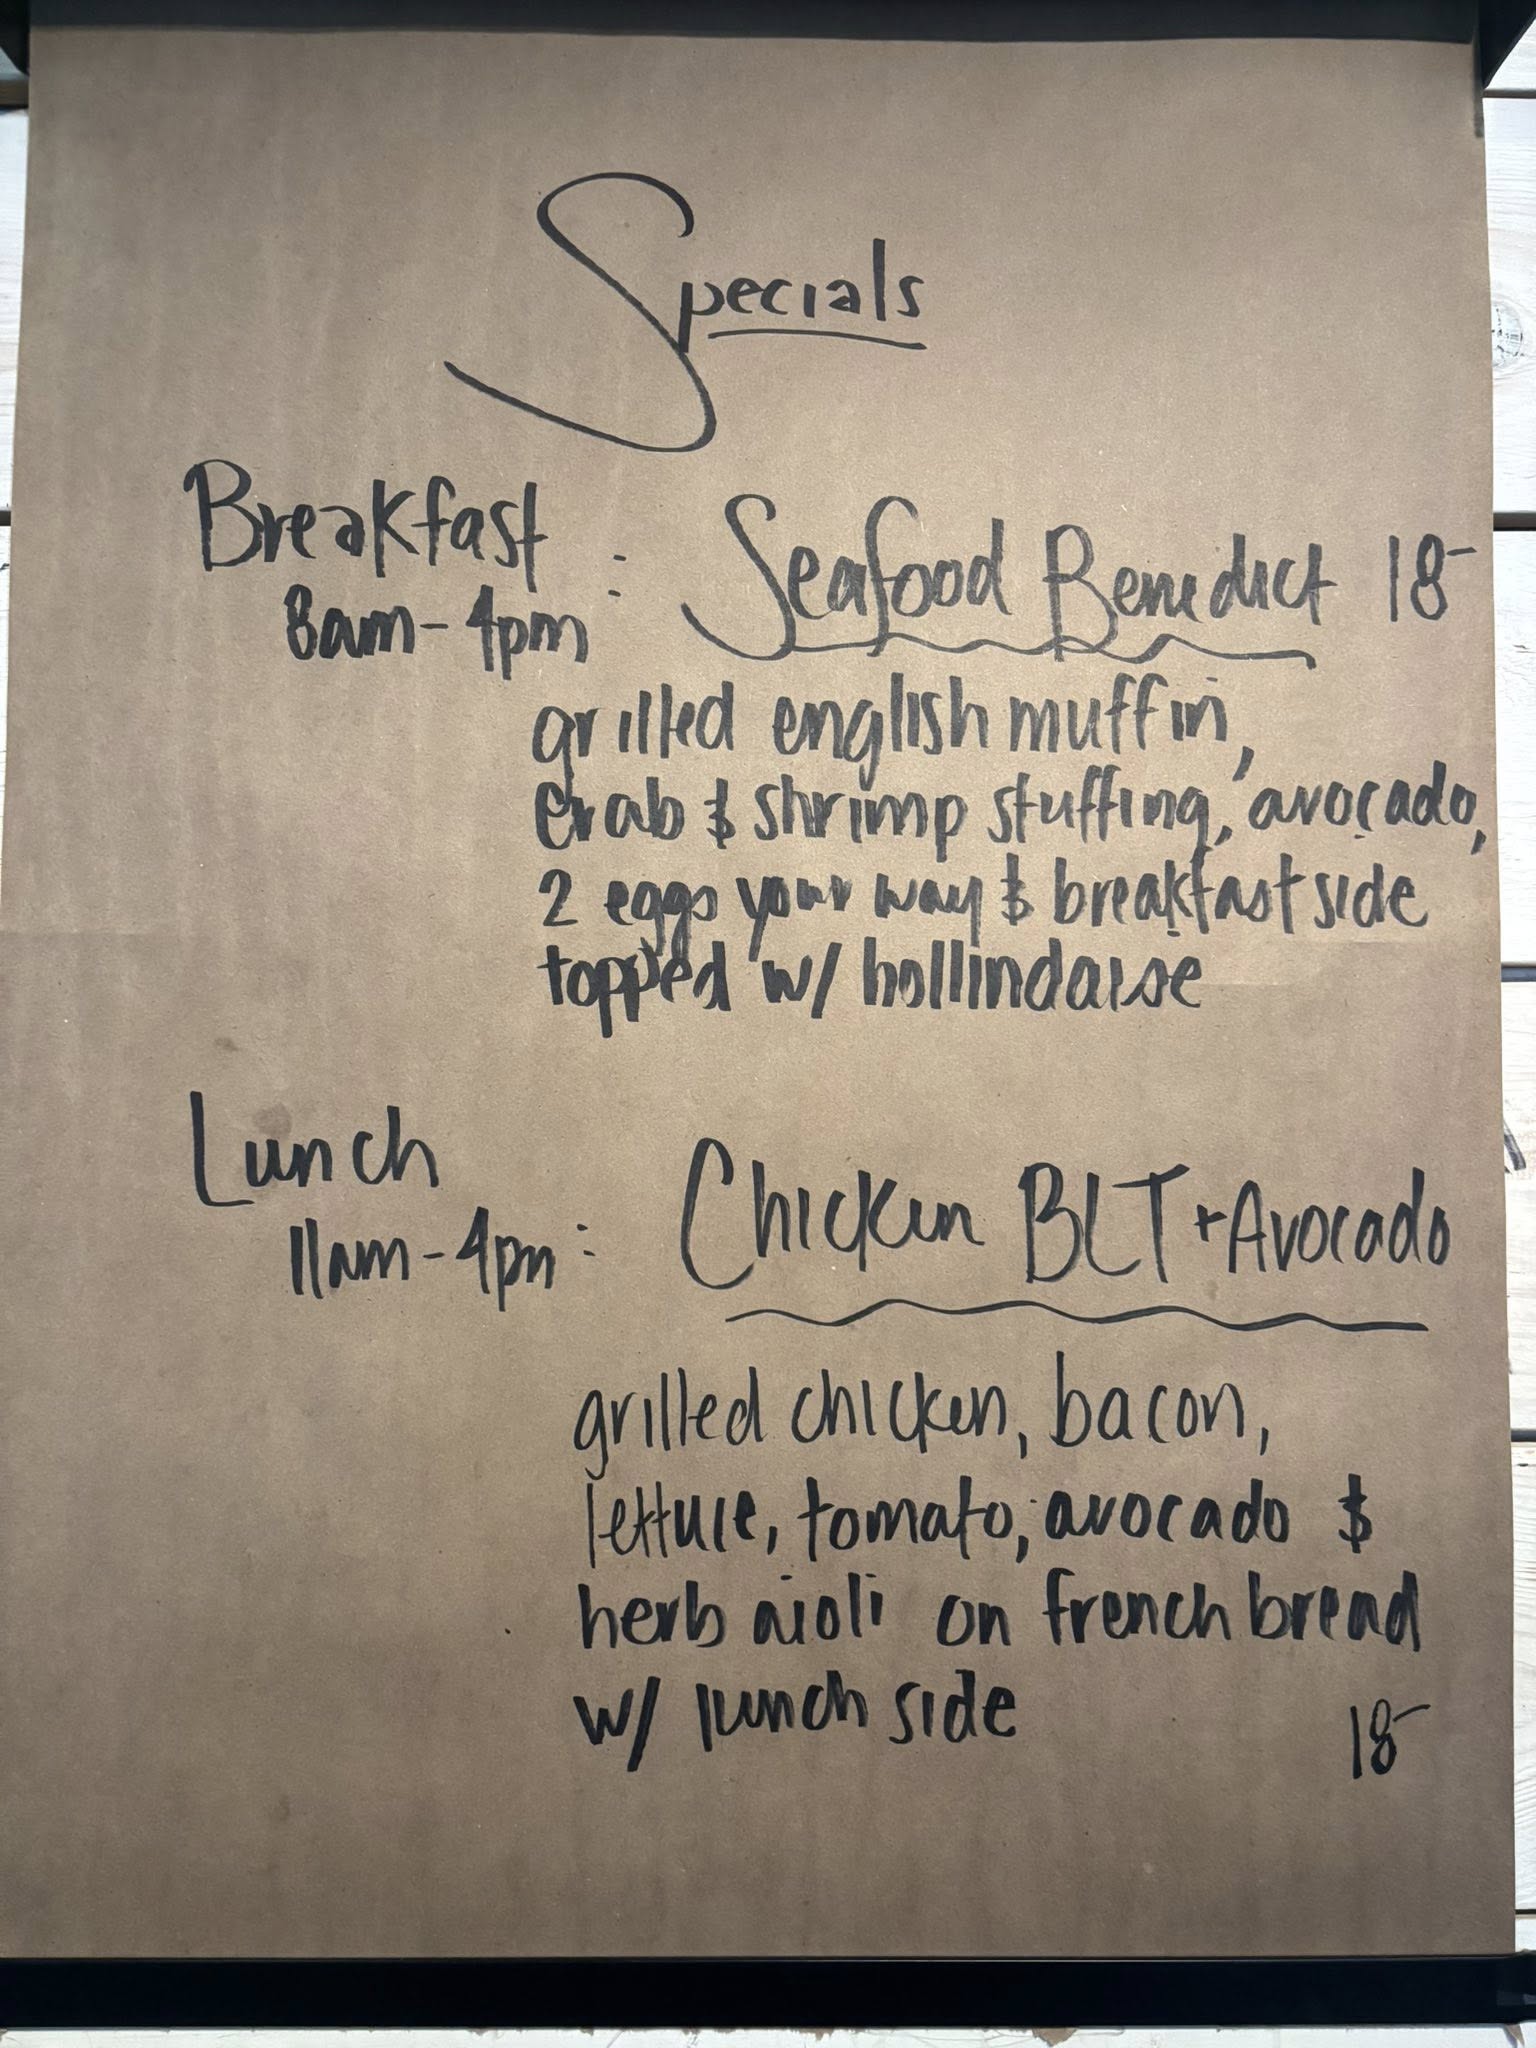 Specials
Breakfast
8am-4pm : Seafood Benedict 18-
grilled english muffin,
crab & shrimp stuffing, avocado,
2 eggs your way & breakfast side
topped w/ hollindaise
Lunch
11am-4pm : Chicken BLT + Avocado
grilled chicken, bacon,
lettuce, tomato, avocado &
herb aioli on french bread
w/ lunch side 18-